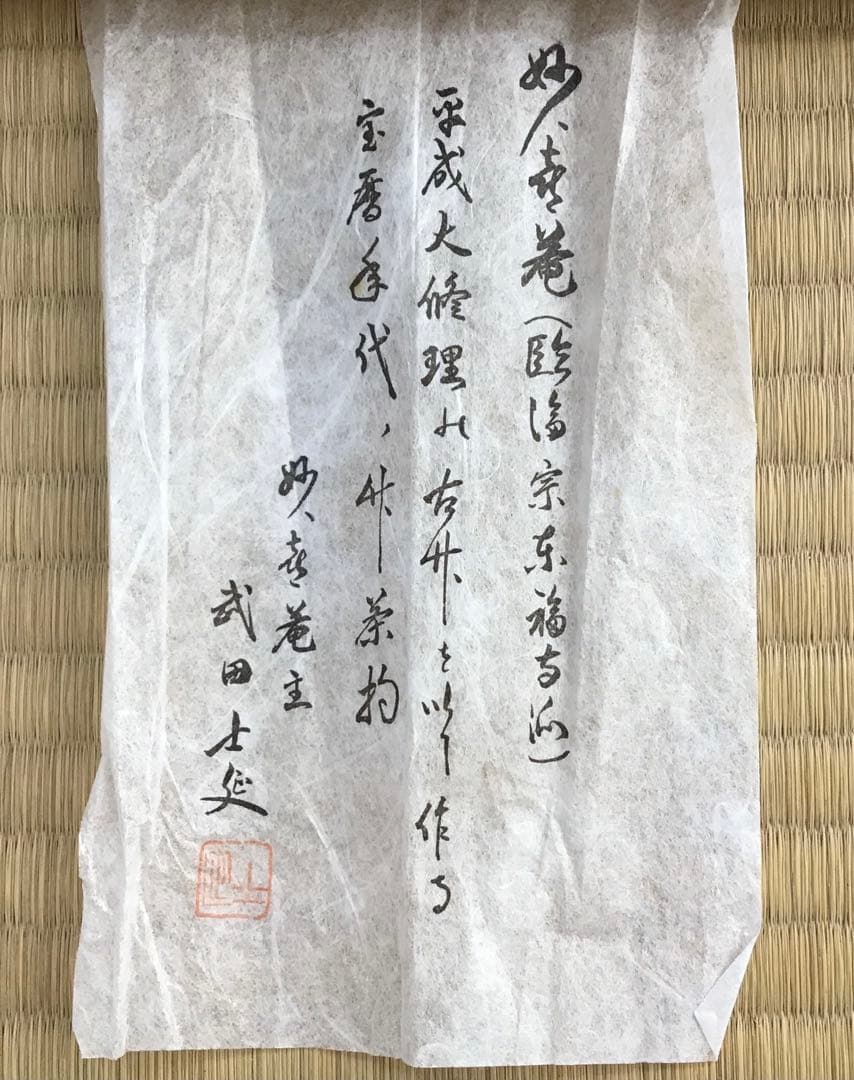 妙喜菴(臨済宗東福寺派)
平成大修理の古竹を以て作す
宝暦年代、竹茶杓
妙喜菴主
武田士延